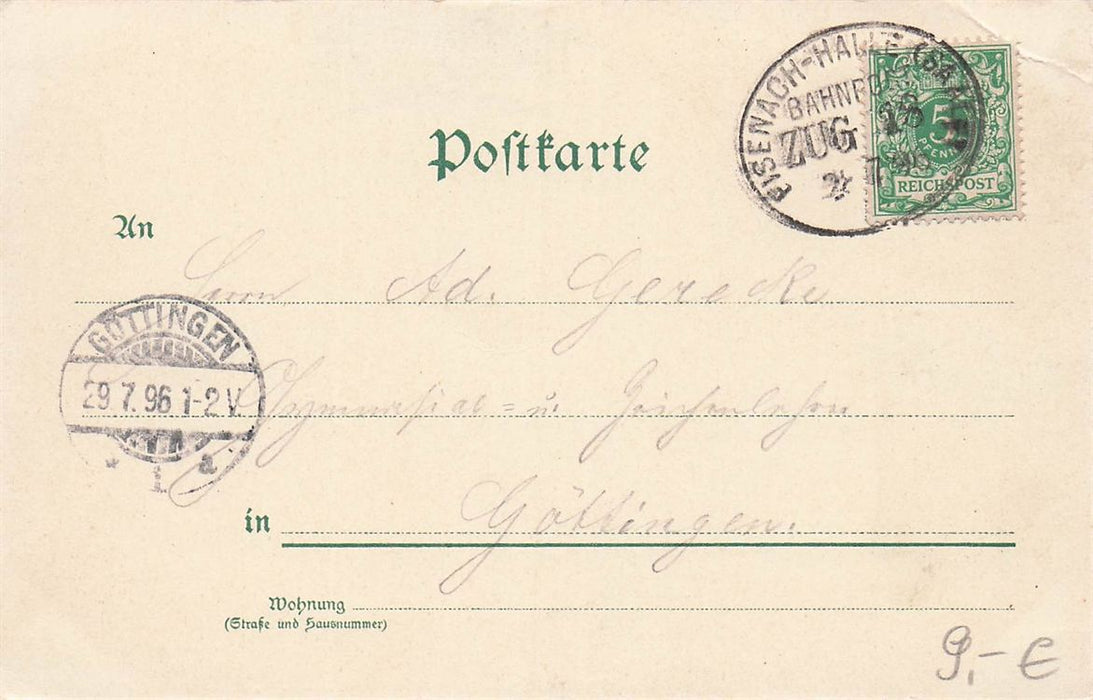 Postkarte
EISENACH-HALLE (SAALE)
BAHNPOST
ZUG
5
PFENNIG
REICHSPOST
An
Herrn Ad. Gerecke
GÖTTINGEN
29.7.96 1-2 V.
* 1 a
Gymnasial = u. Zeichenlehrer
in Göttingen.
Wohnung
(Straße und Hausnummer)
9,- €